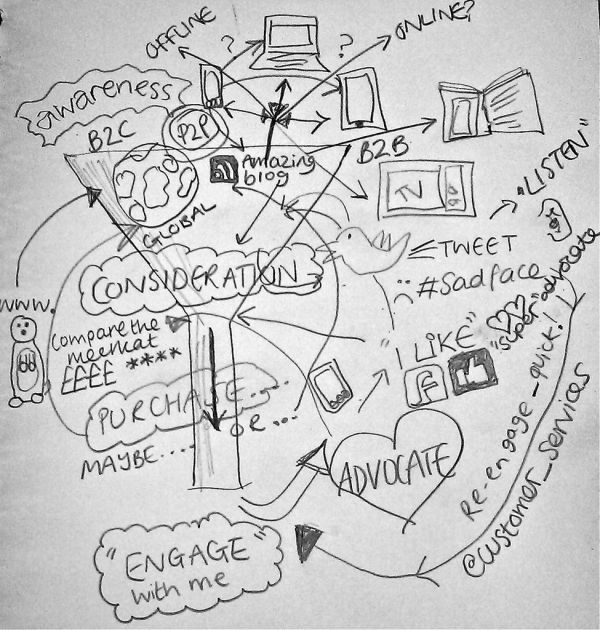 OFFLINE
?
?
ONLINE?
awareness
B2C
P2P
Amazing
blog
B2B
TV
"LISTEN"
GLOBAL
TWEET
#Sadface
CONSIDERATION
www.
Compare the
meerkat
££££ ****
"I LIKE"
f
"super-advocate"
PURCHASE....
OR...
MAYBE....
ADVOCATE
Re-engage_quick!
@customer_services
"ENGAGE"
with me